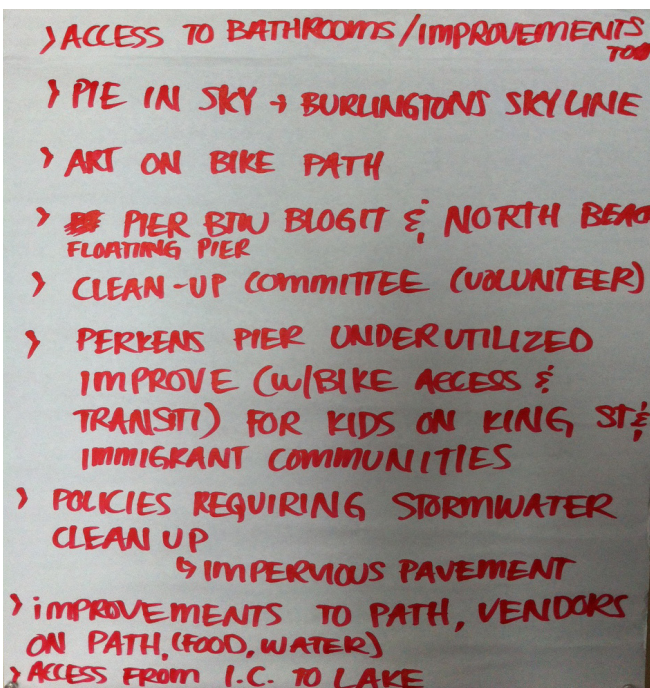 > ACCESS TO BATHROOMS/IMPROVEMENTS
TOO
> PIE IN SKY → BURLINGTONS SKYLINE
> ART ON BIKE PATH
> PIER BTW BLOGIT & NORTH BEAC
FLOATING PIER
> CLEAN-UP COMMITTEE (VOLUNTEER)
> PERKENS PIER UNDERUTILIZED
IMPROVE (W/BIKE ACCESS &
TRANSIT) FOR KIDS ON KING ST &
IMMIGRANT COMMUNITIES
> POLICIES REQUIRING STORMWATER
CLEAN UP
↳ IMPERVIOUS PAVEMENT
> IMPROVEMENTS TO PATH, VENDORS
ON PATH, (FOOD, WATER)
> ACCESS FROM I.C. TO LAKE